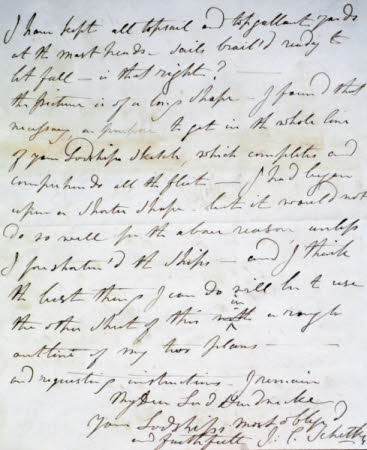 I have kept all topsail and topgallant yards
at the mast heads - sails brail'd ready to
let fall - is that right? -
the picture is of a long shape - I found that
necessary on purpose to get in the whole line
of your Lordships sketch, which completes and
comprehends all the fleet - I had began
upon a shorter shape - but it would not
do so well for the above reason unless
I foreshorten'd the ships - and I think
the best things I can do will be to use
the other sheet of this with in a rough
outline of my two plans -
and requesting instructions - I remain
My Dear Lord
Your Lordships most oblig'd
and faithfull J: C. Schetky